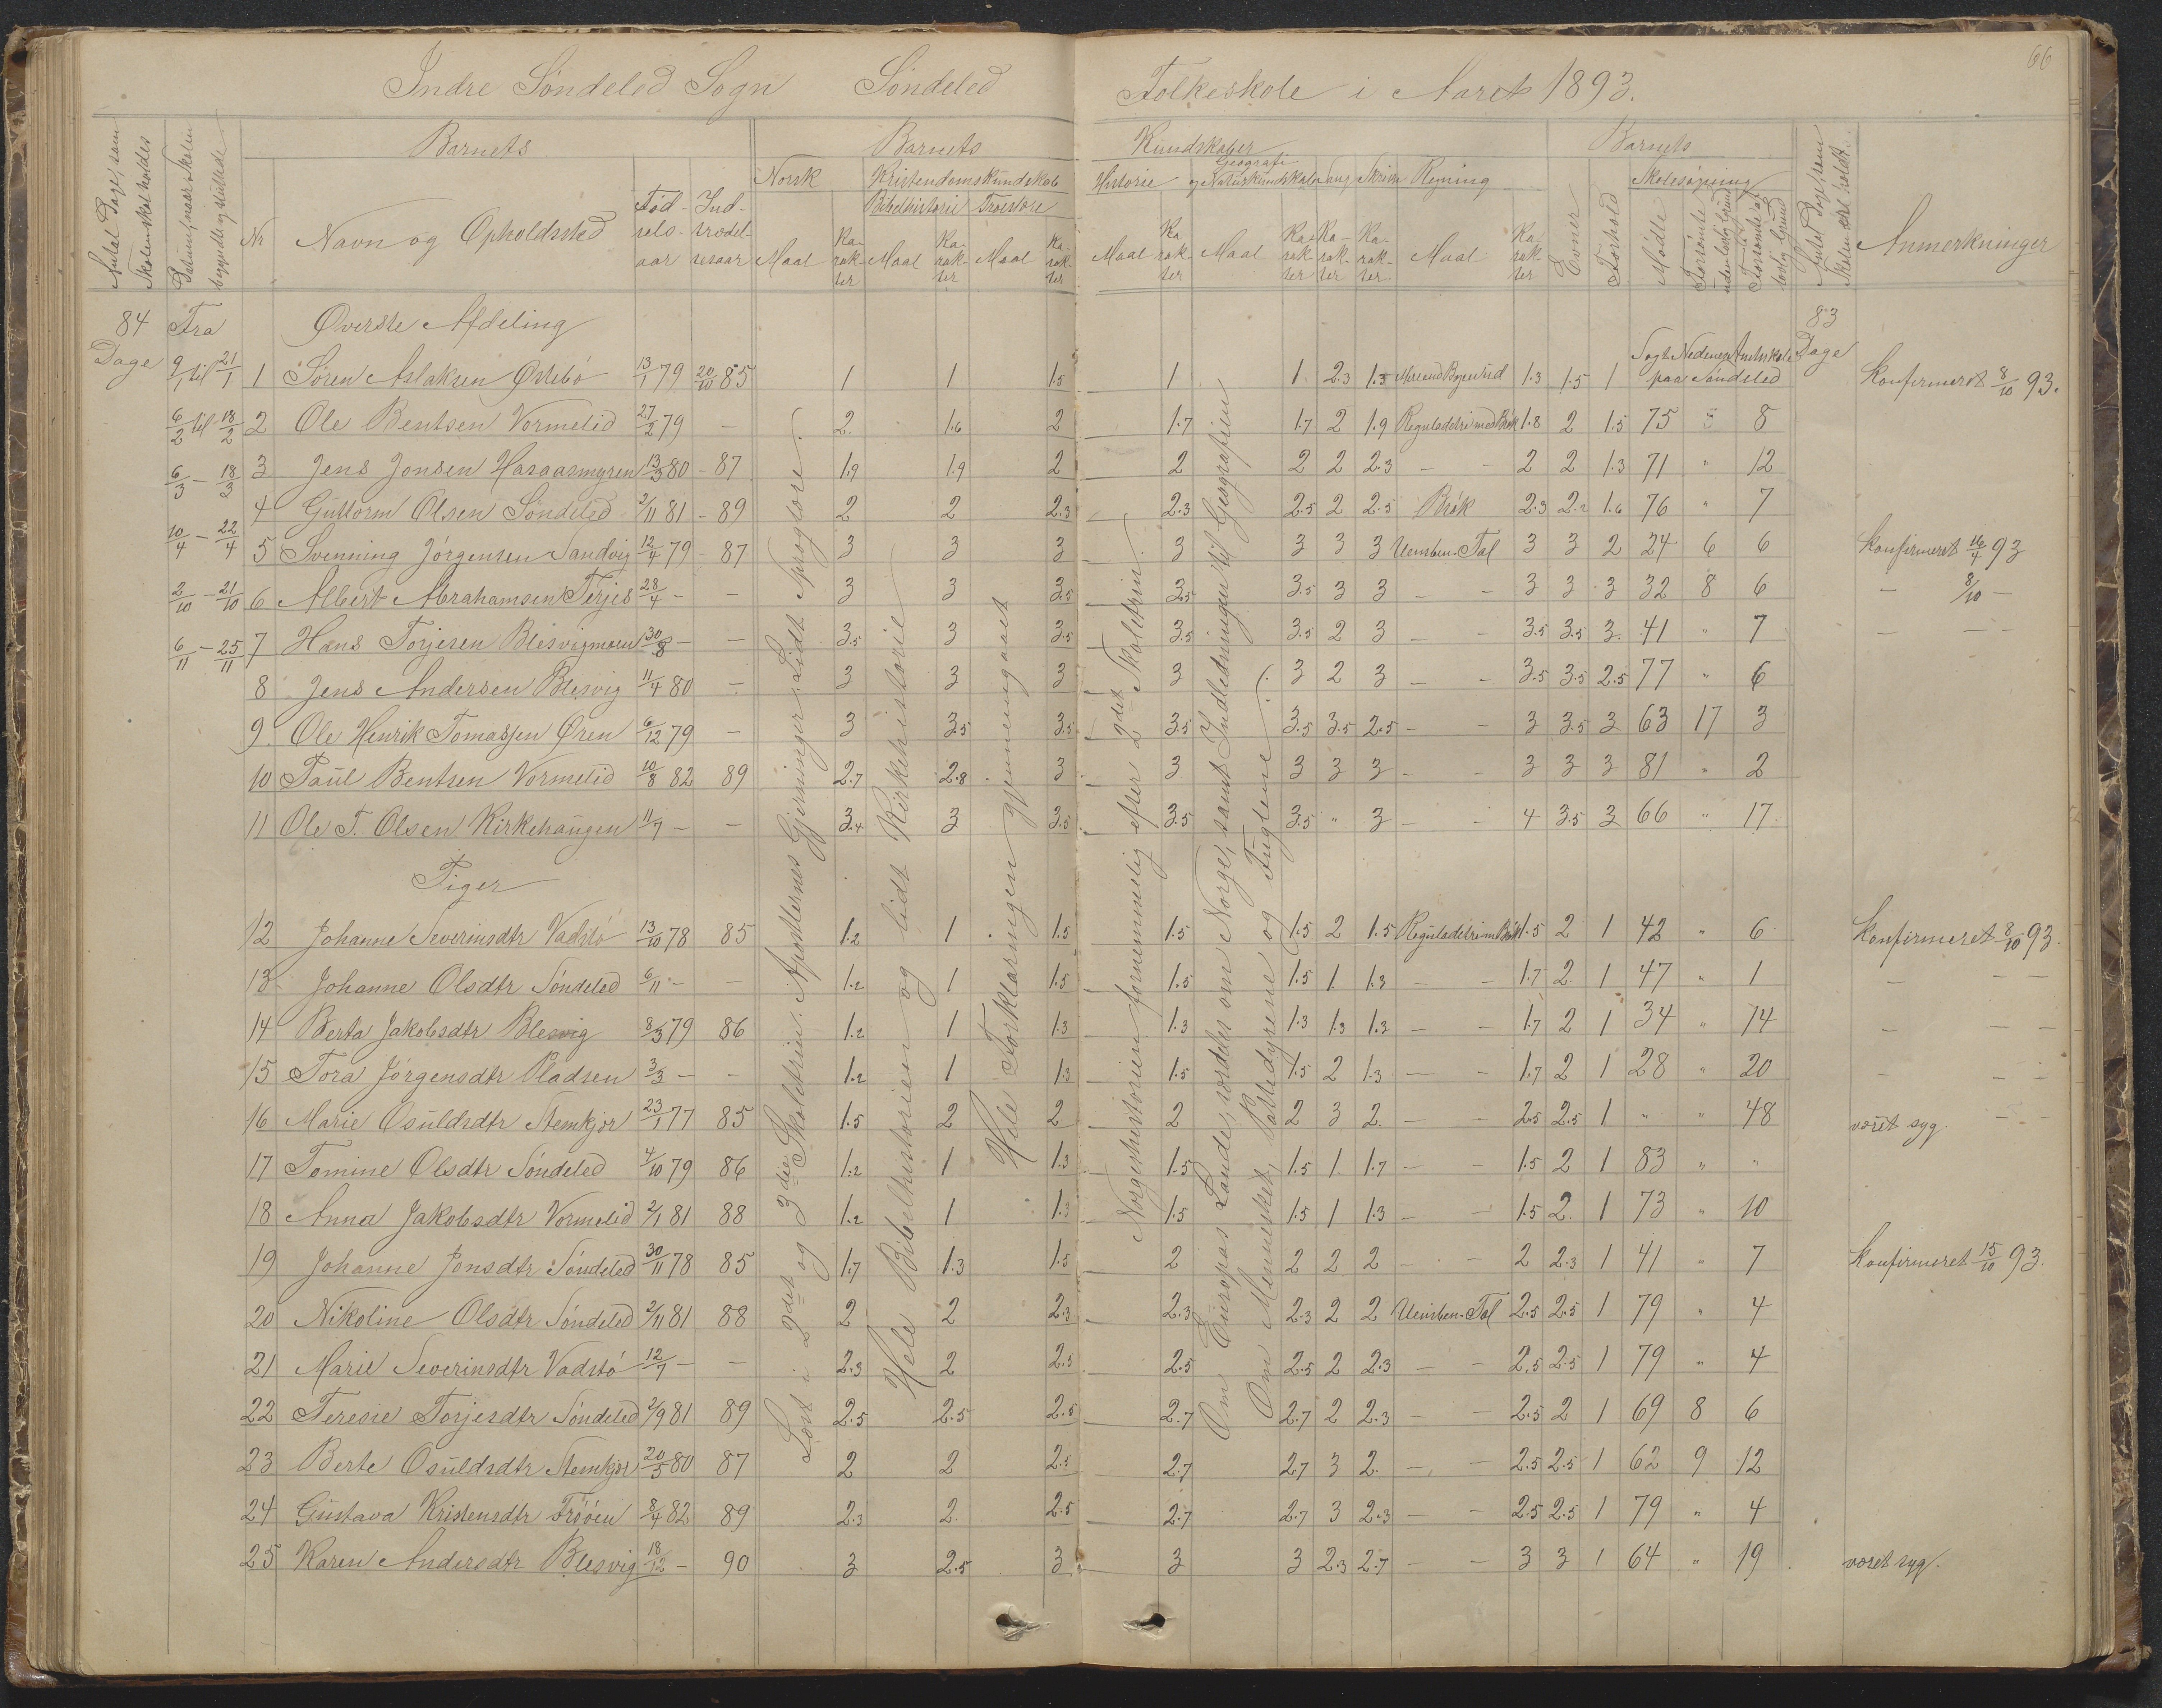 66
Indre Söndeled Sogn Söndeled Folkeskole i Aaret 1893.
Antal Dage, som Skolen skal holdes
Datum, naar Skolen begyndte og sluttede
Nr
Barnets
Navn og Opholdssted
Födselsaar
Indtrædelsesaar
Barnets Kundskaber
Norsk
Maal Karakter
Kristendomskundskab
Bibelhistorie Troeslære
Maal Karakter Maal Karakter
Historie
Maal Karakter
Geografi og Naturkundskab
Maal Karakter
Sang Karakter
Skrivn Karakter
Regning
Maal Karakter
Barnets
Evner
Forhold
Skolesøgning
Mødte
Forsömte uden lovlig Grund
Forsömte af lovlig Grund
Antal Dage, som Skolen blev holdt
Anmerkninger
84 Dage
Fra
9/1 til 21/1
6/2 til 18/2
6/3 - 18/3
10/4 - 22/4
2/10 - 21/10
6/11 - 25/11
83 Dage
Øverste Afdeling
Læst i 2det og 3die Skoletrin: Apostlernes Gjerninger. Lidt Sproglære.
Hele Bibelhistorien og lidt Kirkehistorie
Hele Forklaringen gjennemgaaet
Norgeshistorien fornemmelig efter 2det Skoletrin.
Om Europas Lande, særdeles om Norge, samt Indledningen til Geografien
Om Mennesket, Pattedyrene og Fuglene.
1 Sören Aslaksen Östebö 13/1 79 20/10 85 1 1 1.5 1 1 2.3 1.3 1.3 1.5 1 Søgt Nedenes Amtsskole paa Söndeled Konfirmeret 8/10 93.
2 Ole Bentsen Vormelid 27/2 79 - 2. 1.6 2 1.7 1.7 2 1.9 Reguladetri med Brök 1.8 2 1.5 75 5 8
3 Jens Jonsen Hasaasmyren 13/3 80 - 87 1.9 1.9 2 2 2 2 2.3 - - 2 2 1.3 71 " 12
4 Guttorm Olsen Söndeled 2/11 81 - 89 2 2 2.3 2.3 2.5 2 2.5 Brök 2.3 2.2 1.6 76 " 7
5 Svenning Jörgensen Sandvig 12/4 79 - 87 3 3 3 3 3 3 3 Uensben. Tal 3 3 2 24 6 6 Konfirmeret 16/4 93
6 Albert Abrahamsen Terjes 28/4 - - 3 3 3.5 3.5 3.5 3 3 - - 3 3 3 32 8 6 - 8/10 -
7 Hans Torjesen Blesvigmoen 30/8 - - 3.5 3 3.5 3.5 3.5 2 3 - - 3.5 3.5 3. 41 " 7 - - -
8 Jens Andersen Blesvig 11/4 80 - 3 3 3 3 3 2 3 - - 3.5 3.5 2.5 77 " 6
9. Ole Henrik Tomassen Øren 6/12 79 - 3 3.5 3.5 3.5 3.5 3.5 2.5 - - 3 3.5 3 63 17 3
10 Paul Bentsen Vormelid 10/8 82 89 2.7 2.8 3 3 3 3 3 - - 3 3 3 81 " 2
11 Ole T. Olsen Kirkehaugen 11/7 - - 3.4 3 3.5 3.5 3.5 " 3 - - 4 3.5 3 66 " 17
Piger
12 Johanne Severinsdtr Vadstö 13/10 78 85 1.2 1 1.5 1.5 1.5 2 1.5 Reguladetri m Brök 1.5 2 1 42 " 6 Konfirmeret 8/10 93.
13 Johanne Olsdtr Söndeled 6/11 - - 1.2 1 1.5 1.5 1.5 1 1.3 - - 1.7 2 1 47 " 1 - - -
14 Berta Jakobsdtr Blesvig 8/3 79 86 1.2 1 1.3 1.3 1.3 1.3 1.3 - - 1.7 2 1 34 " 14 - - -
15 Tora Jörgensdtr Pladsen 3/3 - - 1.2 1 1.3 1.5 1.5 2 1.3 - - 1.7 2 1 28 " 20 - - -
16 Marie Osuldsdtr Stemkjær 23/1 77 85 1.5 2 2 2 2 3 2. - - 2.5 2.5 1 " " 48 været syg. - -
17 Tomine Olsdtr Söndeled 4/10 79 86 1.2 1 1.3 1.5 1.5 1 1.7 - - 1.5 2 1 83 " "
18 Anna Jakobsdtr Vormelid 2/1 81 88 1.2 1 1.3 1.5 1.5 1 1.3 - - 1.5 2. 1 73 " 10
19 Johanne Jonsdtr Söndeled 30/11 78 85 1.7 1.3 1.5 2 2 2 2 - - 2 2.3 1 41 " 7 Konfirmeret 15/10 93.
20 Nikoline Olsdtr Söndeled 2/11 81 88 2 2 2.3 2.3 2.3 2 2 Uensben. Tal 2.5 2.5 1 79 " 4
21 Marie Severinsdtr Vadstö 12/7 - - 2.3 2 2.5 2.5 2.5 2 2.3 - - 2.5 2.5 1 79 " 4
22 Teresie Torjesdtr Söndeled 2/9 81 89 2.5 2.5 2.5 2.7 2.7 2 2.3 - - 2.5 2 1 69 8 6
23 Berte Osuldsdtr Stemkjær 20/5 80 87 2 2 2.5 2.7 2.7 3 2. - - 2.5 2.5 1 62 9 12
24 Gustava Kristensdtr Frööen 8/4 82 89 2.3 2. 2.5 2.7 2.7 3 2.3 - - 2.5 2.5 1 79 " 4
25 Karen Andersdtr Blesvig 18/12 - 90 3 2.5 3 3 3 2.3 2.7 - - 3 3 1 64 " 19 været syg.